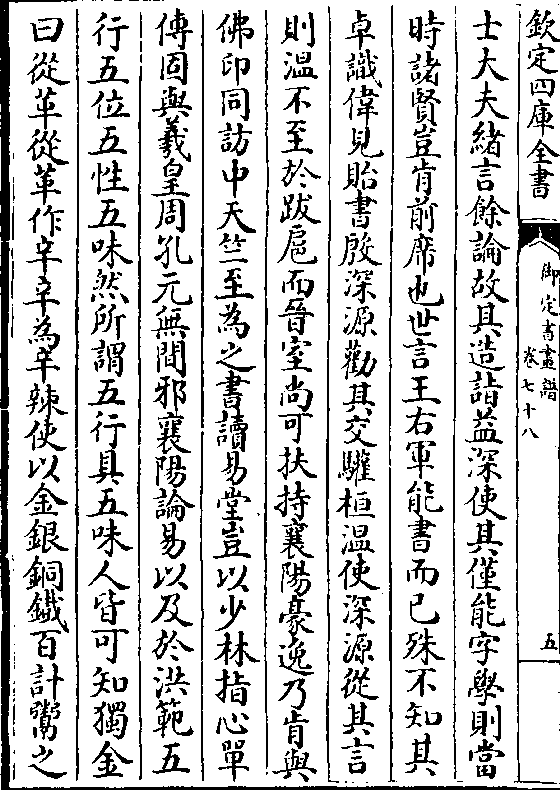 欽定四庫全書
御定書畫譜
卷七十八
五
士大夫緒言餘論故其造詣益深使其僅能字學則當
時諸賢豈肯前席也世言王右軍能書而已殊不知其
卓識偉見貽書殷深源勸其交驩桓溫使深源從其言
則溫不至於跋扈而晉室尚可扶持襄陽豪逸乃肯與
佛印同訪中天竺至為之書讀易堂豈以少林指心單
傳固與羲皇周孔元無間邪襄陽論易以及於洪範五
行五位五性五味然所謂五行具五味人皆可知獨金
曰從革從革作辛辛為辛辣使以金銀銅鐵百計鬻之